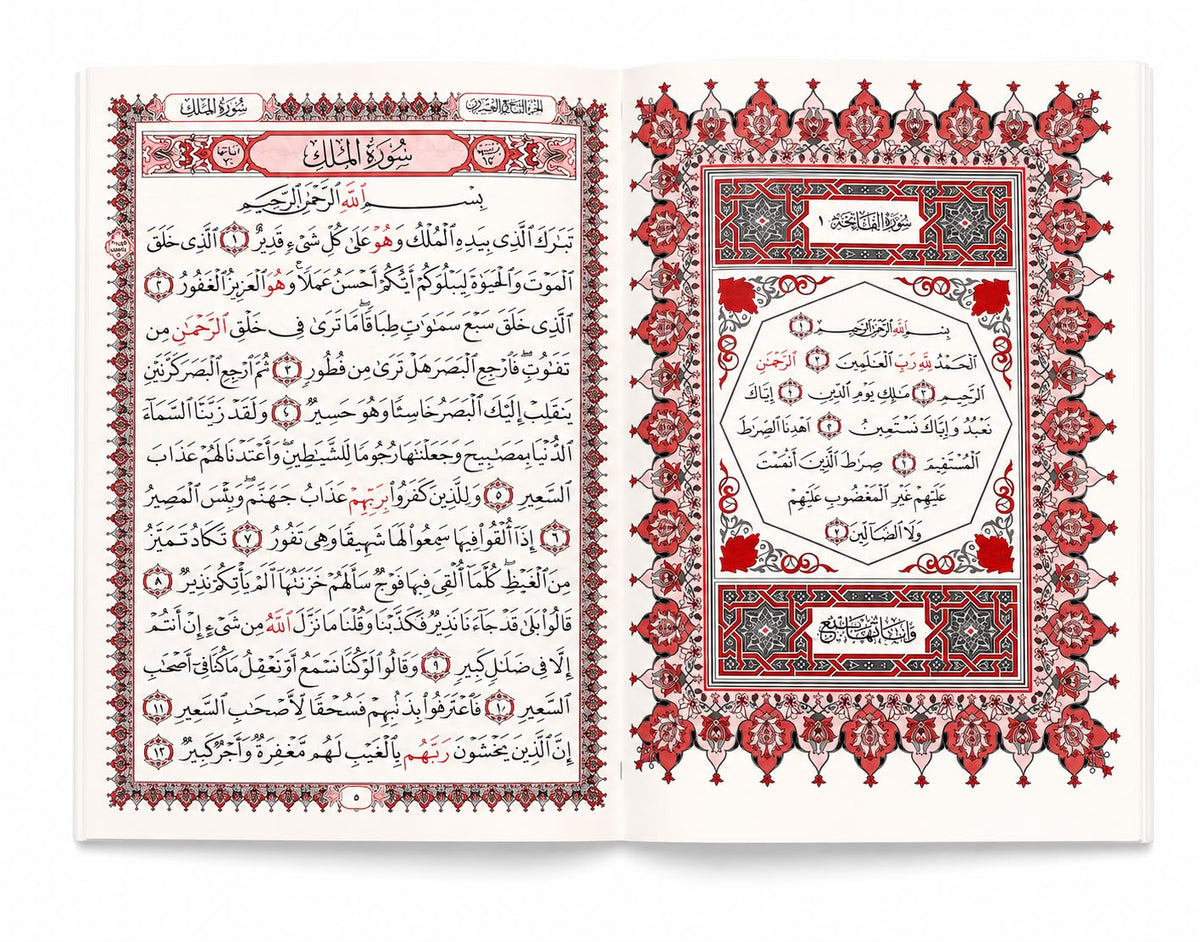 سُورَةُ الفَاتِحَةِ ١
بِسْمِ ٱللَّهِ ٱلرَّحْمَٰنِ ٱلرَّحِيمِ ١
ٱلْحَمْدُ لِلَّهِ رَبِّ ٱلْعَٰلَمِينَ ٢ ٱلرَّحْمَٰنِ
ٱلرَّحِيمِ مَٰلِكِ يَوْمِ ٱلدِّينِ إِيَّاكَ
نَعْبُدُ وَإِيَّاكَ نَسْتَعِينُ ٱهْدِنَا ٱلصِّرَٰطَ
ٱلْمُسْتَقِيمَ صِرَٰطَ ٱلَّذِينَ
عَلَيْهِمْ غَيْرِ ٱلْمَغْضُوبِ عَلَيْهِمْ
وَلَا ٱلضَّآلِّينَ
سُورَةُ المُلْكِ
سُورَةُ المُلْكِ
بِسْمِ ٱللَّهِ ٱلرَّحْمَٰنِ ٱلرَّحِيمِ
تَبَٰرَكَ ٱلَّذِى بِيَدِهِ ٱلْمُلْكُ وَهُوَ عَلَىٰ كُلِّ شَىْءٍ قَدِيرٌ ١ ٱلَّذِى خَلَقَ
ٱلْمَوْتَ وَٱلْحَيَوٰةَ لِيَبْلُوَكُمْ أَيُّكُمْ أَحْسَنُ عَمَلًا وَهُوَ ٱلْعَزِيزُ ٱلْغَفُورُ ٢
ٱلَّذِى خَلَقَ سَبْعَ سَمَٰوَٰتٍ طِبَاقًا مَّا تَرَىٰ فِى خَلْقِ ٱلرَّحْمَٰنِ مِن
تَفَٰوُتٍ فَٱرْجِعِ ٱلْبَصَرَ هَلْ تَرَىٰ مِن فُطُورٍ ٣ ثُمَّ ٱرْجِعِ ٱلْبَصَرَ كَرَّتَيْنِ
يَنقَلِبْ إِلَيْكَ ٱلْبَصَرُ خَاسِئًا وَهُوَ حَسِيرٌ ٤ وَلَقَدْ زَيَّنَّا ٱلسَّمَآءَ
ٱلدُّنْيَا بِمَصَٰبِيحَ وَجَعَلْنَٰهَا رُجُومًا لِّلشَّيَٰطِينِ وَأَعْتَدْنَا لَهُمْ عَذَابَ
ٱلسَّعِيرِ ٥ وَلِلَّذِينَ كَفَرُوا۟ بِرَبِّهِمْ عَذَابُ جَهَنَّمَ وَبِئْسَ ٱلْمَصِيرُ
٦ إِذَآ أُلْقُوا۟ فِيهَا سَمِعُوا۟ لَهَا شَهِيقًا وَهِىَ تَفُورُ ٧ تَكَادُ تَمَيَّزُ
مِنَ ٱلْغَيْظِ كُلَّمَآ أُلْقِىَ فِيهَا فَوْجٌ سَأَلَهُمْ خَزَنَتُهَآ أَلَمْ يَأْتِكُمْ نَذِيرٌ ٨
قَالُوا۟ بَلَىٰ قَدْ جَآءَنَا نَذِيرٌ فَكَذَّبْنَا وَقُلْنَا مَا نَزَّلَ ٱللَّهُ مِن شَىْءٍ إِنْ أَنتُمْ
إِلَّا فِى ضَلَٰلٍ كَبِيرٍ ٩ وَقَالُوا۟ لَوْ كُنَّا نَسْمَعُ أَوْ نَعْقِلُ مَا كُنَّا فِىٓ أَصْحَٰبِ
ٱلسَّعِيرِ ١٠ فَٱعْتَرَفُوا۟ بِذَنۢبِهِمْ فَسُحْقًا لِّأَصْحَٰبِ ٱلسَّعِيرِ ١١
إِنَّ ٱلَّذِينَ يَخْشَوْنَ رَبَّهُم بِٱلْغَيْبِ لَهُم مَّغْفِرَةٌ وَأَجْرٌ كَبِيرٌ ١٢
٥